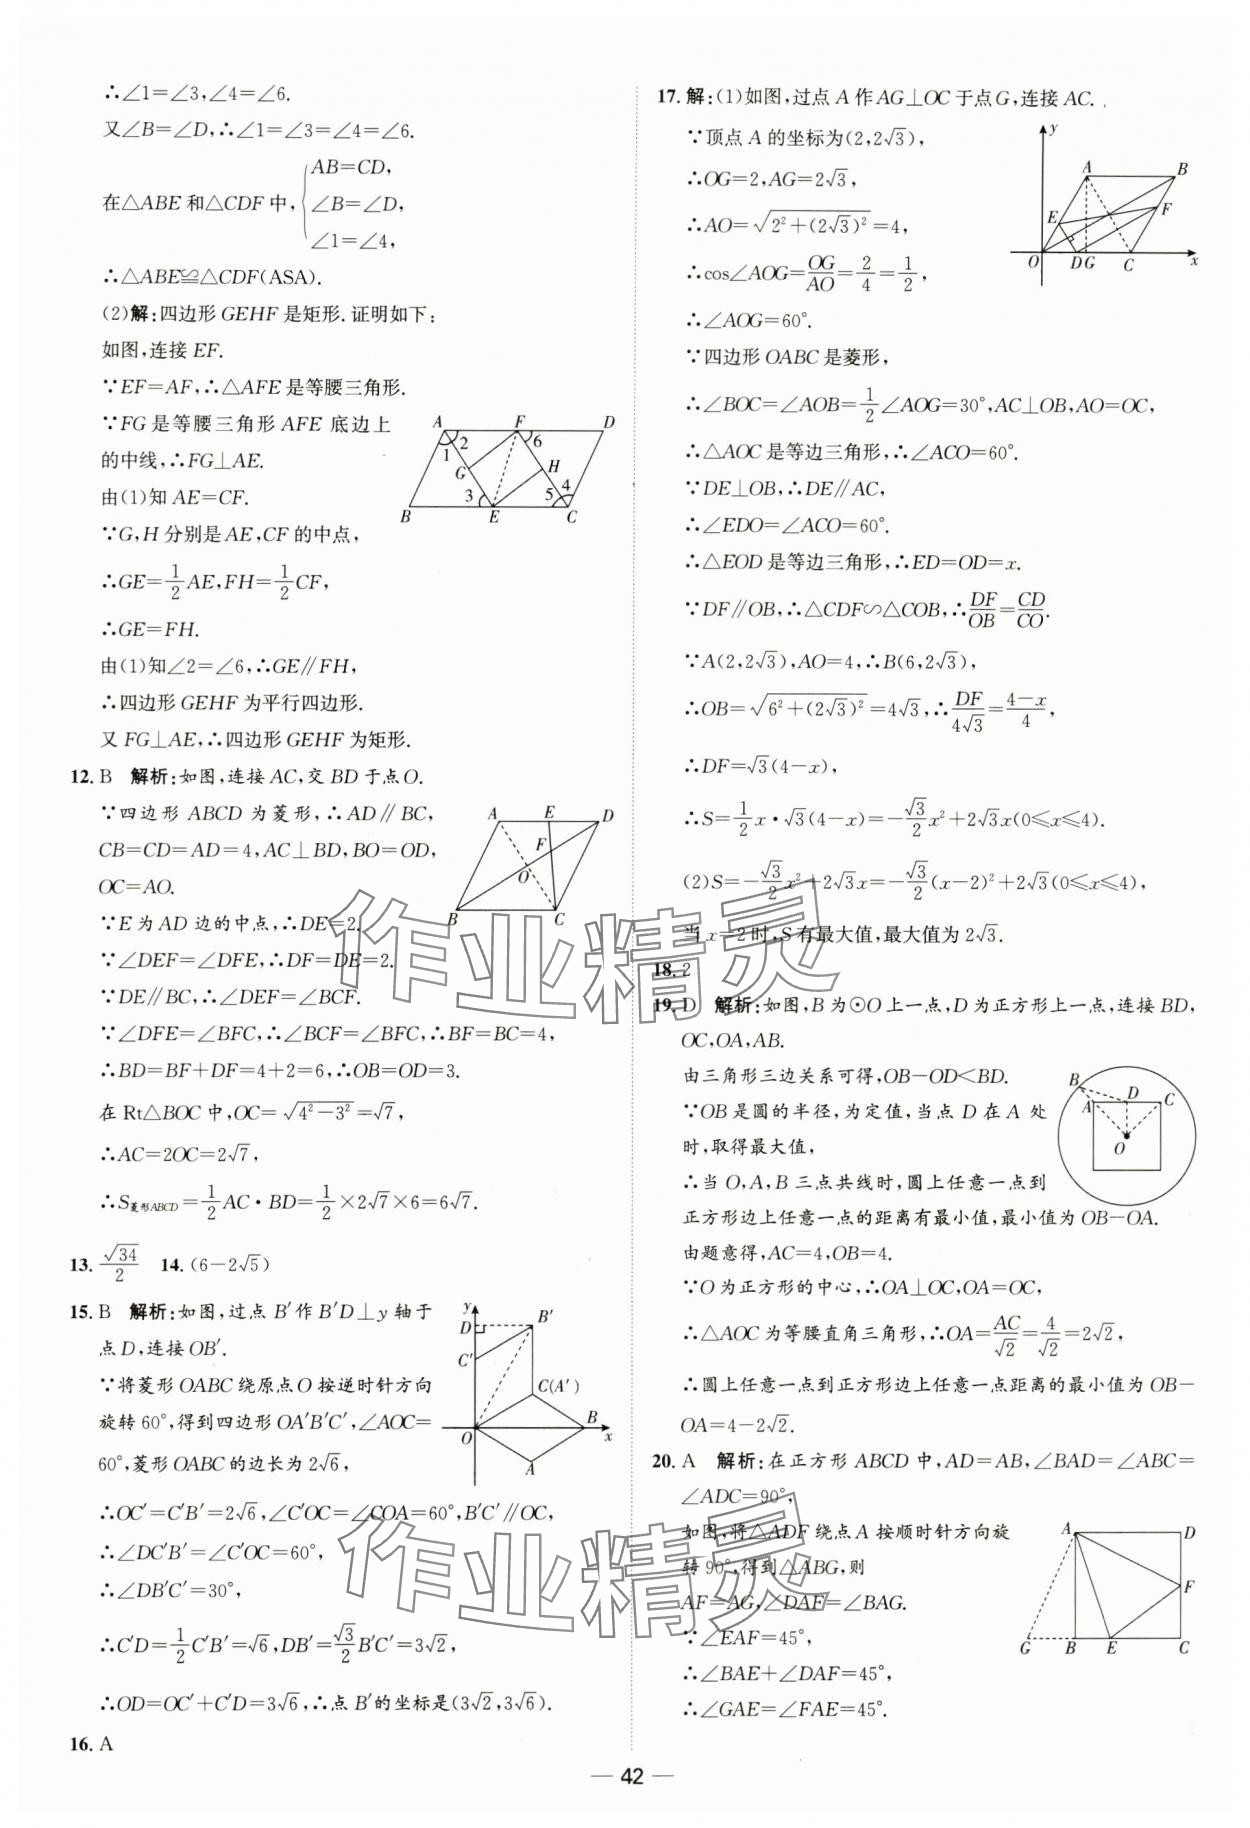 ∴∠1=∠3,∠4=∠6.
又∠B=∠D,∴∠1=∠3=∠4=∠6.
在△ABE和△CDF中,{AB=CD,
∠B=∠D,
∠1=∠4,
∴△ABE≌△CDF(ASA).
(2)解:四边形GEHF是矩形.证明如下:
如图,连接EF.
∵EF=AF,∴△AFE是等腰三角形.
∵FG是等腰三角形AFE底边上
的中线,∴FG⊥AE.
由(1)知AE=CF.
∵G,H分别是AE,CF的中点,
∴GE=1/2AE,FH=1/2CF,
∴GE=FH.
由(1)知∠2=∠6,∴GE∥FH,
∴四边形GEHF为平行四边形.
又FG⊥AE,∴四边形GEHF为矩形.
A F D
1 2 6
G H
3 5 4
B E C
12. B 解析:如图,连接AC,交BD于点O.
∵四边形ABCD为菱形,∴AD∥BC,
CB=CD=AD=4,AC⊥BD,BO=OD,
OC=AO.
∵E为AD边的中点,∴DE=2.
∵∠DEF=∠DFE,∴DF=DE=2.
∵DE∥BC,∴∠DEF=∠BCF.
∵∠DFE=∠BFC,∴∠BCF=∠BFC,∴BF=BC=4,
∴BD=BF+DF=4+2=6,∴OB=OD=3.
在Rt△BOC中,OC=√(4²-3²)=√7,
∴AC=2OC=2√7,
∴S菱形ABCD=1/2AC·BD=1/2×2√7×6=6√7.
A E D
F
O
B C
13. √34/2 14. (6-2√5)
15. B 解析:如图,过点B′作B′D⊥y轴于
点D,连接OB′.
∵将菱形OABC绕原点O按逆时针方向
旋转60°,得到四边形OA′B′C′,∠AOC=
60°,菱形OABC的边长为2√6,
∴OC′=C′B′=2√6,∠C′OC=∠COA=60°,B′C′∥OC,
∴∠DC′B′=∠C′OC=60°,
∴∠DB′C′=30°,
∴C′D=1/2C′B′=√6,DB′=√3/2B′C′=3√2,
∴OD=OC′+C′D=3√6,∴点B′的坐标是(3√2,3√6).
y
D B′
C′
C(A′)
B
O x
A
16. A
17. 解:(1)如图,过点A作AG⊥OC于点G,连接AC.
∵顶点A的坐标为(2,2√3),
∴OG=2,AG=2√3,
∴AO=√(2²+(2√3)²)=4,
∴cos∠AOG=OG/AO=2/4=1/2,
∴∠AOG=60°.
∵四边形OABC是菱形,
∴∠BOC=∠AOB=1/2∠AOG=30°,AC⊥OB,AO=OC,
∴△AOC是等边三角形,∴∠ACO=60°.
∵DE⊥OB,∴DE∥AC,
∴∠EDO=∠ACO=60°.
∴△EOD是等边三角形,∴ED=OD=x.
∵DF∥OB,∴△CDF∽△COB,∴DF/OB=CD/CO.
∵A(2,2√3),AO=4,∴B(6,2√3),
∴OB=√(6²+(2√3)²)=4√3,∴DF/4√3=(4-x)/4,
∴DF=√3(4-x),
∴S=1/2x·√3(4-x)=-√3/2x²+2√3x(0≤x≤4).
(2)S=-√3/2x²+2√3x=-√3/2(x-2)²+2√3(0≤x≤4),
当x=2时,S有最大值,最大值为2√3.
y
A B
E F
O D G C x
18. 2
19. D 解析:如图,B为⊙O上一点,D为正方形上一点,连接BD,
OC,OA,AB.
由三角形三边关系可得,OB-OD<BD.
∵OB是圆的半径,为定值,当点D在A处
时,取得最大值,
∴当O,A,B三点共线时,圆上任意一点到
正方形边上任意一点的距离有最小值,最小值为OB-OA.
由题意得,AC=4,OB=4.
∵O为正方形的中心,∴OA⊥OC,OA=OC,
∴△AOC为等腰直角三角形,∴OA=AC/√2=4/√2=2√2,
∴圆上任意一点到正方形边上任意一点距离的最小值为OB-
OA=4-2√2.
B D
A C
O
20. A 解析:在正方形ABCD中,AD=AB,∠BAD=∠ABC=
∠ADC=90°,
如图,将△ADF绕点A按顺时针方向旋
转90°,得到△ABG,则
AF=AG,∠DAF=∠BAG.
∵∠EAF=45°,
∴∠BAE+∠DAF=45°,
∴∠GAE=∠FAE=45°.
A D
F
G B E C
— 42 —
作业精灵
作业精灵